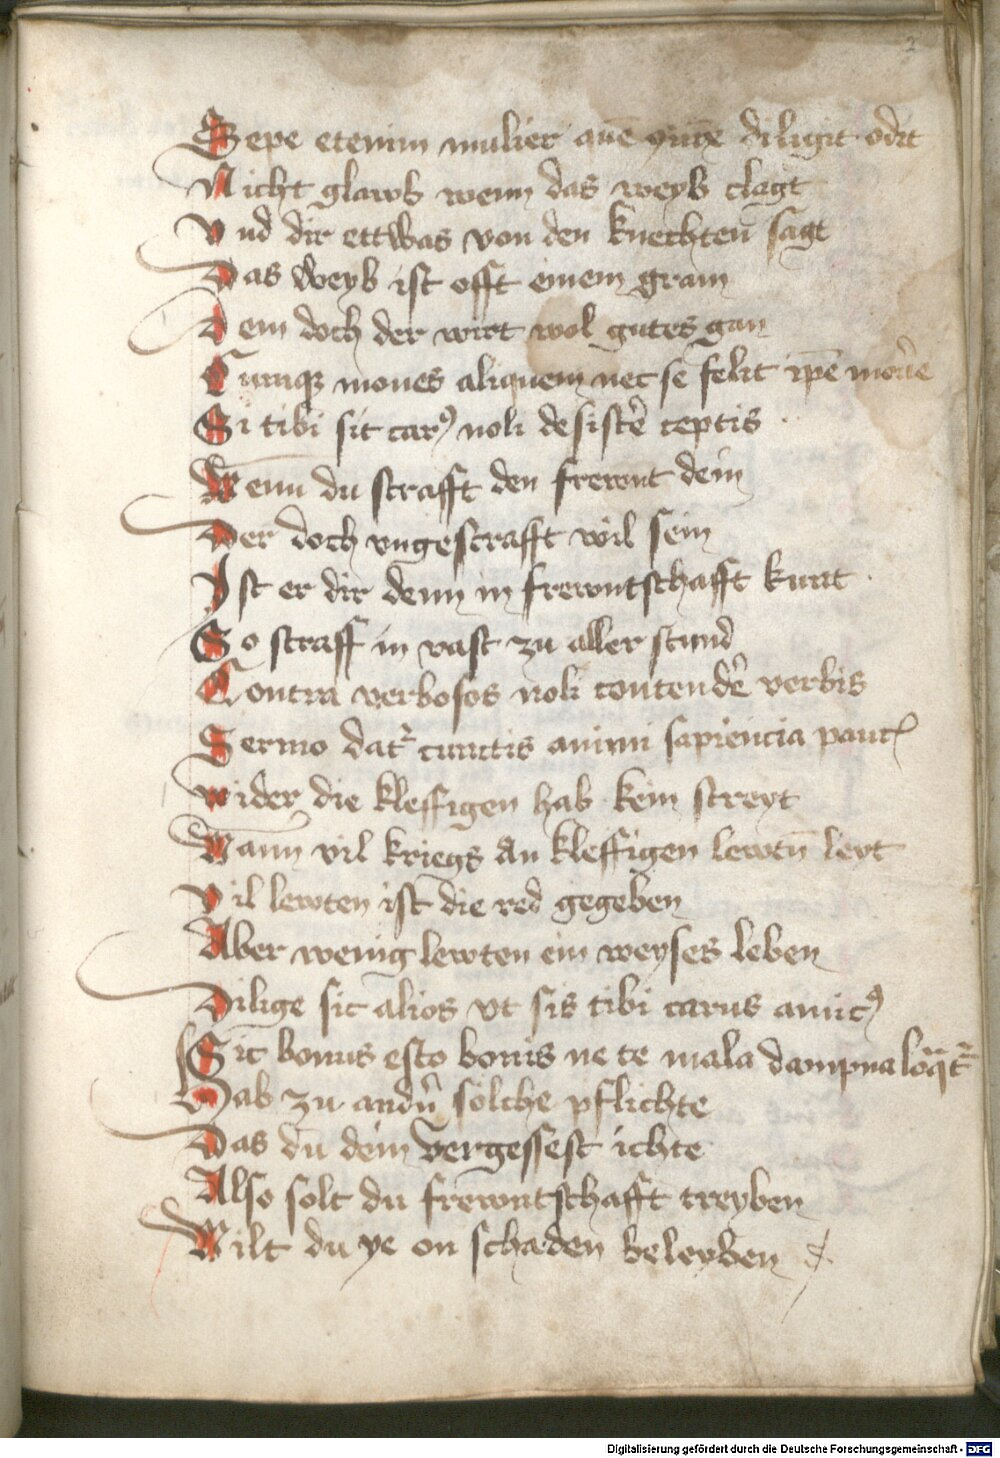 2
Sepe etenim mulier quē ꝯiūx diligit odit
Nicht glawb wenn das weyb clagt
Vnd dir ettwas von den knechten̄ sagt
Das weyb ist offt einem gram
Dem doch der wirt wol gutes gan
Cumqꝫ mones aliquem nec se felit ip̄e mon̄e
Si tibi sit carꝰ noli desist̄e ceptis
Wenn du strafft den frewnt dein
Der doch vngestrafft wil sein
Ist er dir denn in frewntschafft kunt
So straff in vast zu aller stund
Contra verbosos noli contend̄e verbis
Sermo datᷣ cunctis animi sapiencia paucꝭ
wider die kleffigen hab kein streyt
Wann vil kriegs an kleffigen lewtn̄ leyt
Vil lewten ist die red gegeben
Aber wenig lewten ein weyses leben
Dilige sic alios vt sis tibi carus amicꝰ
Sic bonus esto bonis ne te mala dampna loq̄tᷣ
Hab zu andn̄ solche pflichte
Das du dein vergessest ichte
Also solt du frewntschafft treyben
Wilt du ye on schaden beleyben
Digitalisierung gefördert durch die Deutsche Forschungsgemeinschaft - DFG